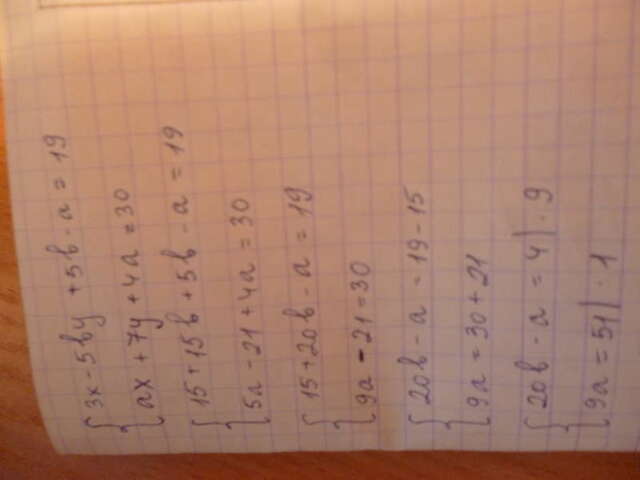 {3x - 5by + 5b - a = 19
{ax + 7y + 4a = 30
{15 + 15b + 5b - a = 19
{5a - 21 + 4a = 30
{15 + 20b - a = 19
{9a - 21 = 30
{20b - a = 19 - 15
{9a = 30 + 21
{20b - a = 4| · 9
{9a = 51| · 1